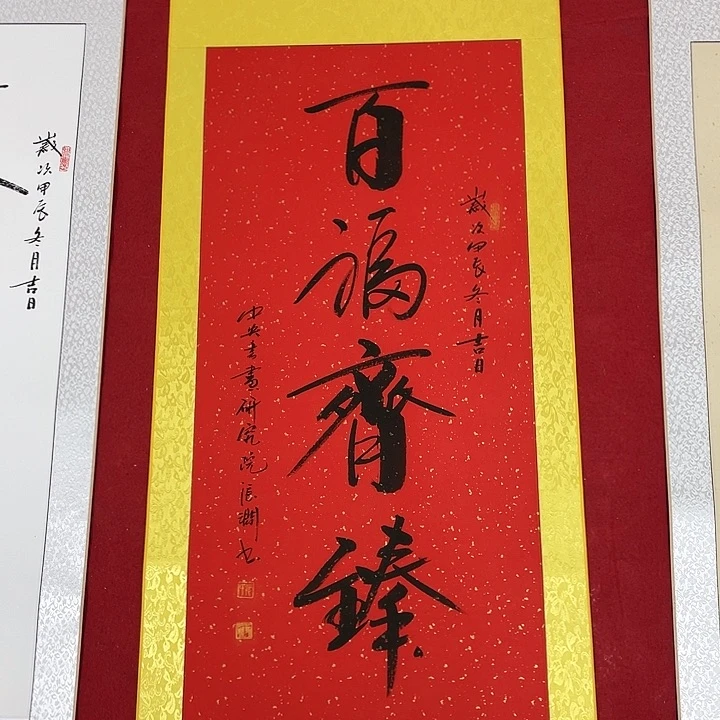 百福齊臻
歲次甲辰冬月吉日
中央書畫研究院張淵書
歲次甲辰冬月吉日